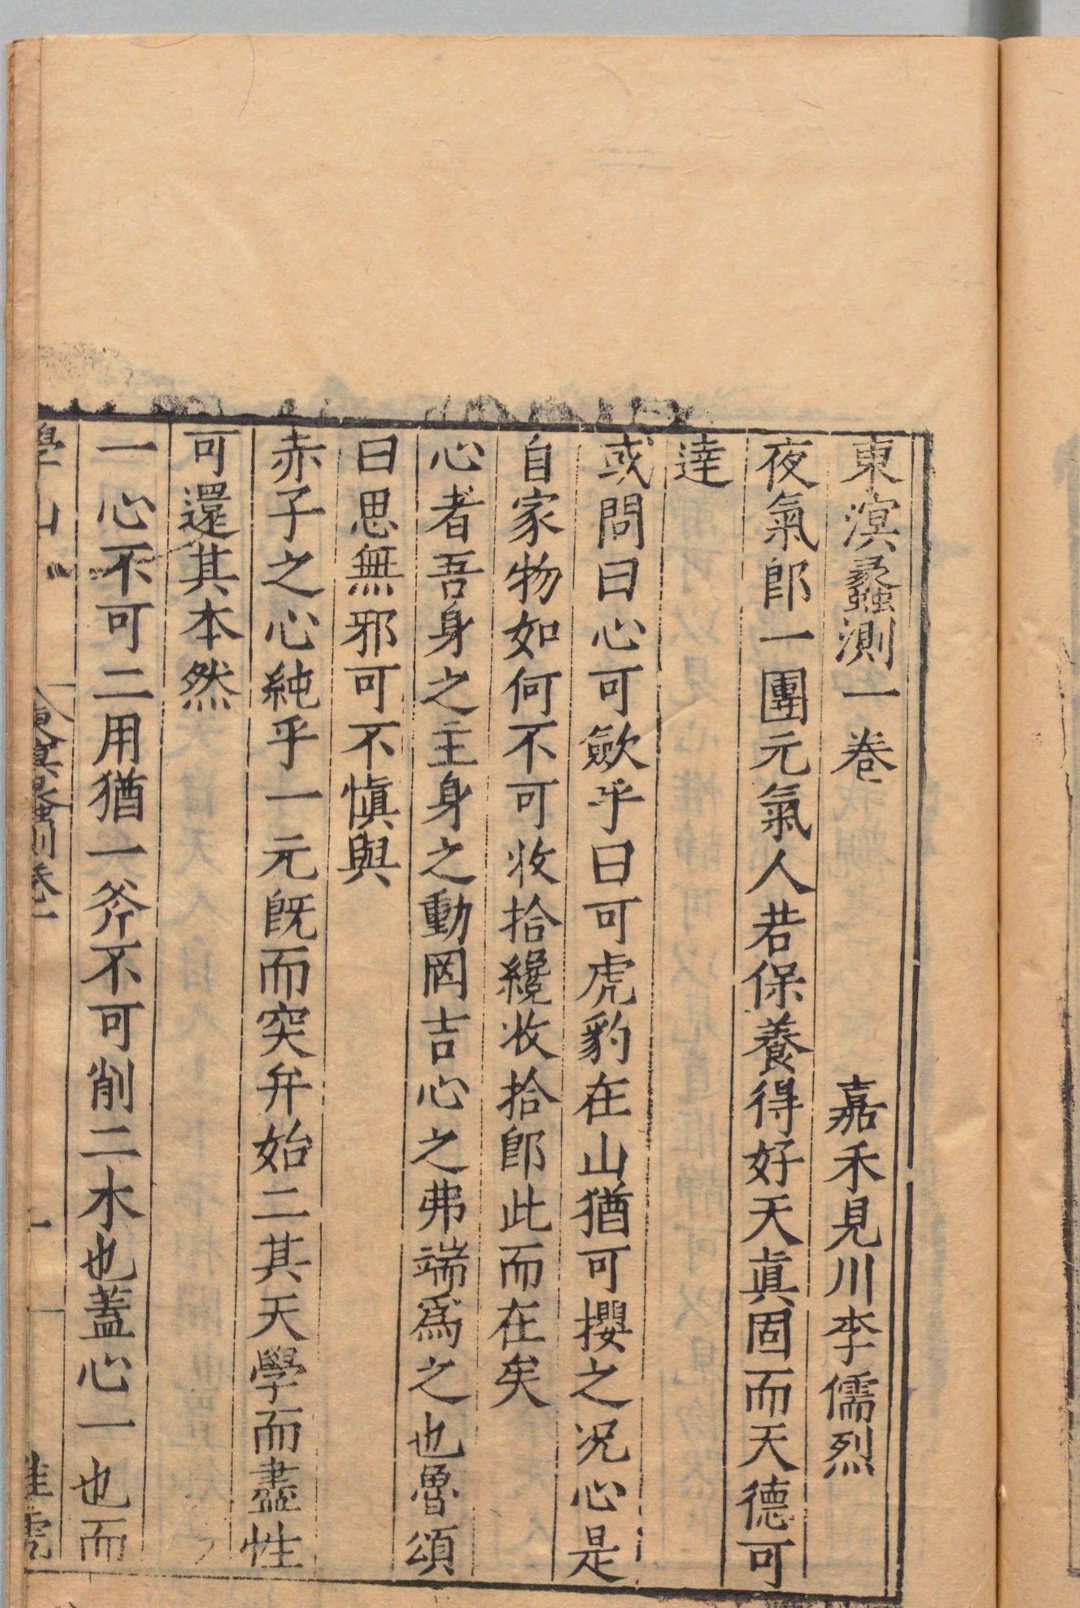 東溟蠡測一卷 嘉禾見川李儒烈
夜氣即一團元氣人若保養得好天眞固而天德可
達
或問曰心可歛乎曰可虎豹在山猶可攖之况心是
自家物如何不可收拾纔收拾即此而在矣
心者吾身之主身之動罔吉心之弗端爲之也魯頌
曰思無邪可不愼與
赤子之心純乎一元旣而突弁始二其天學而盡性
可還其本然
一心不可二用猶一斧不可削二木也蓋心一也而
學山 東溟蠡測卷一 一